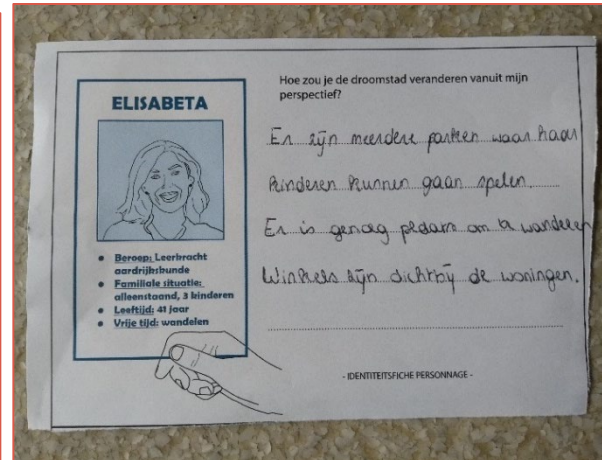 ELISABETA
Beroep: Leerkracht
aardrijkskunde
Familiale situatie:
alleenstaand, 3 kinderen
Leeftijd: 41 jaar
Vrije tijd: wandelen
Hoe zou je de droomstad veranderen vanuit mijn
perspectief?
Er zijn meerdere parken waar haar
kinderen kunnen gaan spelen.
Er is genoeg om te wandelen
Winkels zijn dichtbij de woningen.
- IDENTITEITSFICHE PERSONNAGE -